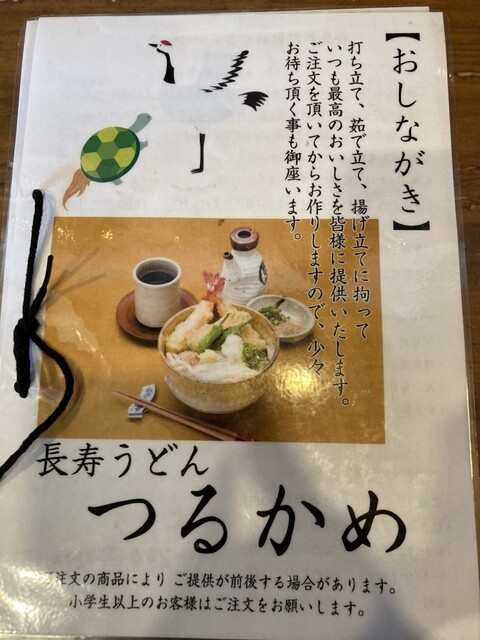 【おしながき】
打ち立て、茹で立て、揚げ立てに拘って
いつも最高のおいしさを皆様に提供いたします。
ご注文を頂いてからお作りしますので、少々
お待ち頂く事も御座います。
長寿うどん
つるかめ
ご注文の商品により ご提供が前後する場合があります。
小学生以上のお客様はご注文をお願いします。